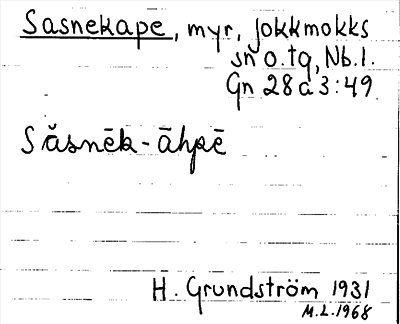 Sasnekape, myr, Jokkmokks
sn o. tg, Nb. l.
Gn 28 a 3:49
Sǎsnēk-āhpē
H. Grundström 1931
M.L. 1968